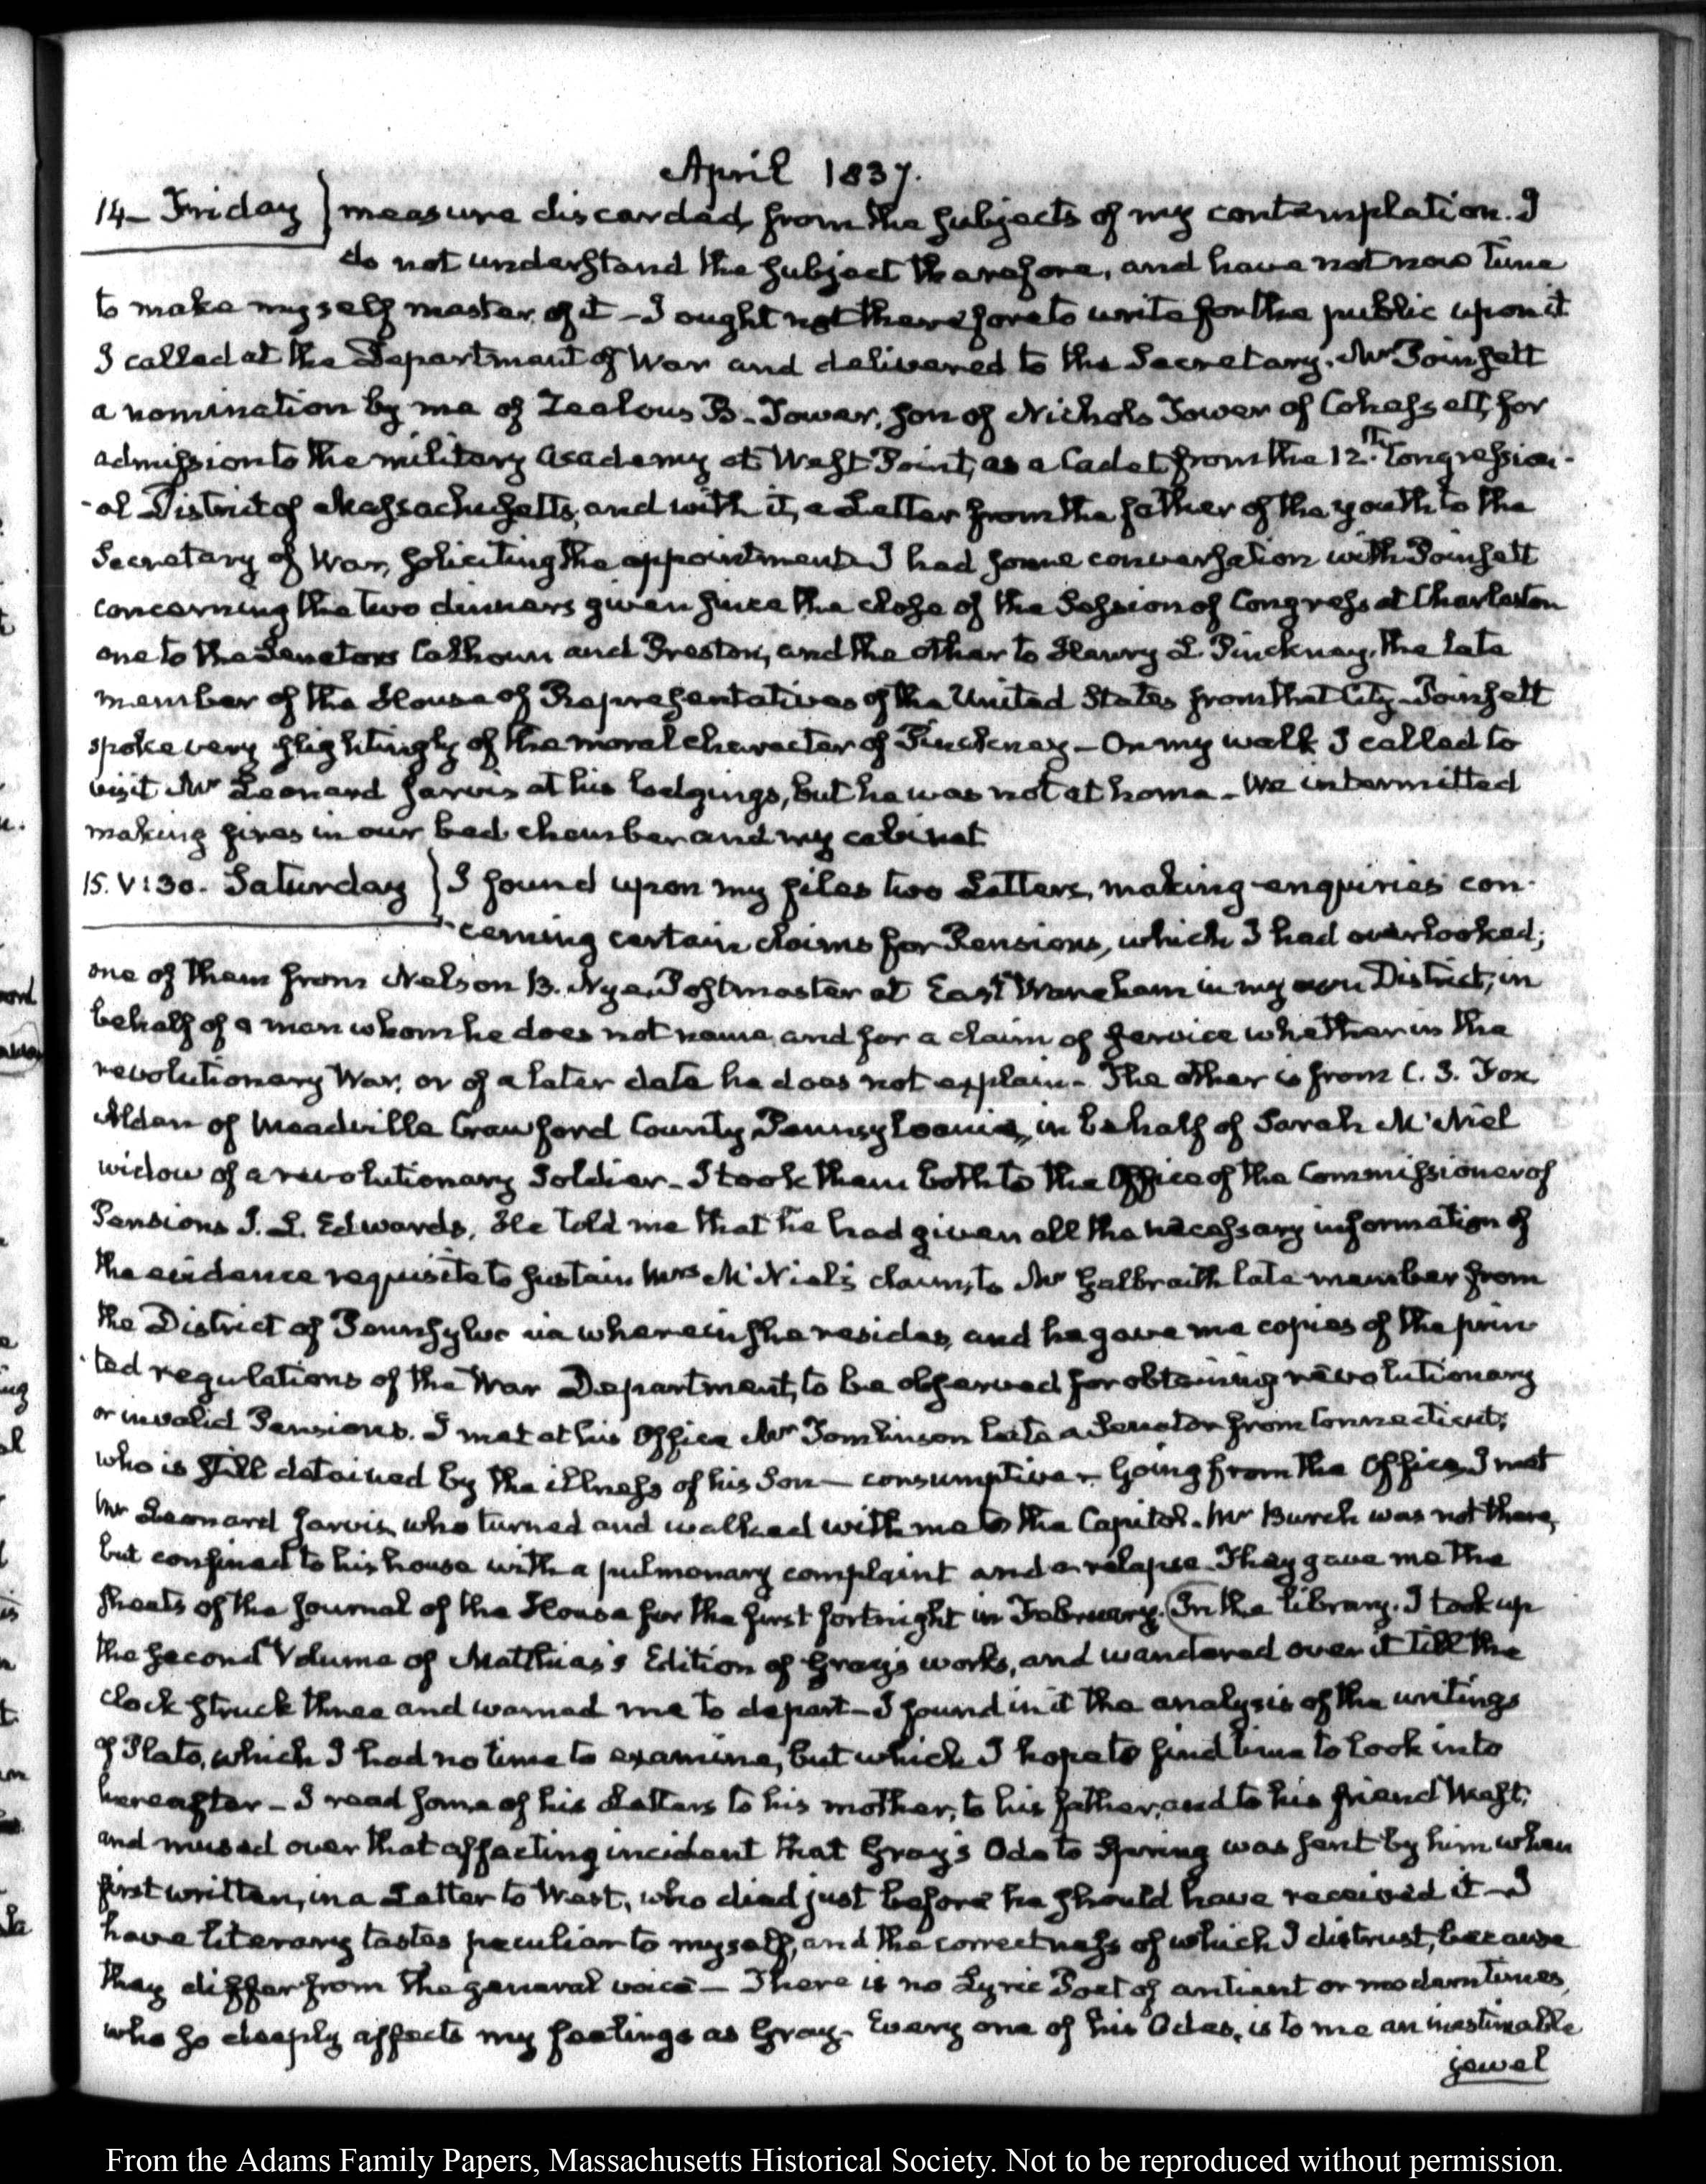 April 1837.
14 - Friday } measure discarded from the subjects of my contemplation. I
do not understand the subject therefore, and have not now time
to make myself master of it - I ought not therefore to write for the public upon it
I called at the Department of War and delivered to the Secretary, Mr Poinsett
a nomination by me of Zealous B. Tower, son of Nichols Tower of Cohassett, for
admission to the military academy at West Point, as a Cadet from the 12th Congression-
-al District of Massachusetts, and with it, a Letter from the father of the youth to the
Secretary of War, soliciting the appointment. I had some conversation with Poinsett
concerning the two dinners given since the close of the Session of Congress at Charleston
one to the Senators Calhoun and Preston, and the other to Henry L Pinckney, the late
member of the House of Representatives of the United States from that City - Poinsett
spoke very slightingly of the moral character of Pinckney - On my walk I called to
visit Mr Leonard Jarvis at his lodgings, but he was not at home - We intermitted
making fires in our bed chamber and my cabinet
15. V:30. Saturday } I found upon my files two Letters, making enquiries con-
-cerning certain claims for Pensions, which I had overlooked;
one of them from Nelson B. Nye, Postmaster at East Wareham in my own District, in
behalf of a man whom he does not name, and for a claim of service whether in the
revolutionary War, or of a later date he does not explain - The other is from C. S. Fox
Alden of Meadville Crawford County Pennsylvania, in behalf of Sarah McNiel
widow of a revolutionary Soldier - I took them both to the Office of the Commissioner of
Pensions J. L. Edwards. He told me that he had given all the necessary information of
the evidence requisite to sustain Mrs McNiel's claim, to Mr Galbraith late member from
the District of Pennsylvania wherein she resides, and he gave me copies of the prin
-ted regulations of the War Department, to be observed for obtaining revolutionary
or invalid Pensions. I met at his Office Mr Tomlinson late a Senator from Connecticut;
who is still detained by the illness of his Son - consumptive - Going from the Office I met
Mr Leonard Jarvis, who turned and walked with me to the Capitol. Mr Burch was not there,
but confined to his house with a pulmonary complaint and a relapse. They gave me the
sheets of the Journal of the House for the first fortnight in February. In the library. I took up
the second Volume of Matthias's Edition of Gray's works, and wandered over it till the
clock struck three and warned me to depart - I found in it the analysis of the writings
of Plato, which I had no time to examine, but which I hope to find time to look into
hereafter - I read some of his Letters to his mother, to his father, and to his friend West;
and mused over that affecting incident that Gray's Ode to Spring was sent by him when
first written, in a Letter to West, who died just before he should have received it - I
have literary tastes peculiar to myself, and the correctness of which I distrust, because
they differ from the general voice - There is no Lyric Poet of antient or modern times,
who so deeply affects my feelings as Gray - Every one of his Odes, is to me an inestimable
jewel
From the Adams Family Papers, Massachusetts Historical Society. Not to be reproduced without permission.